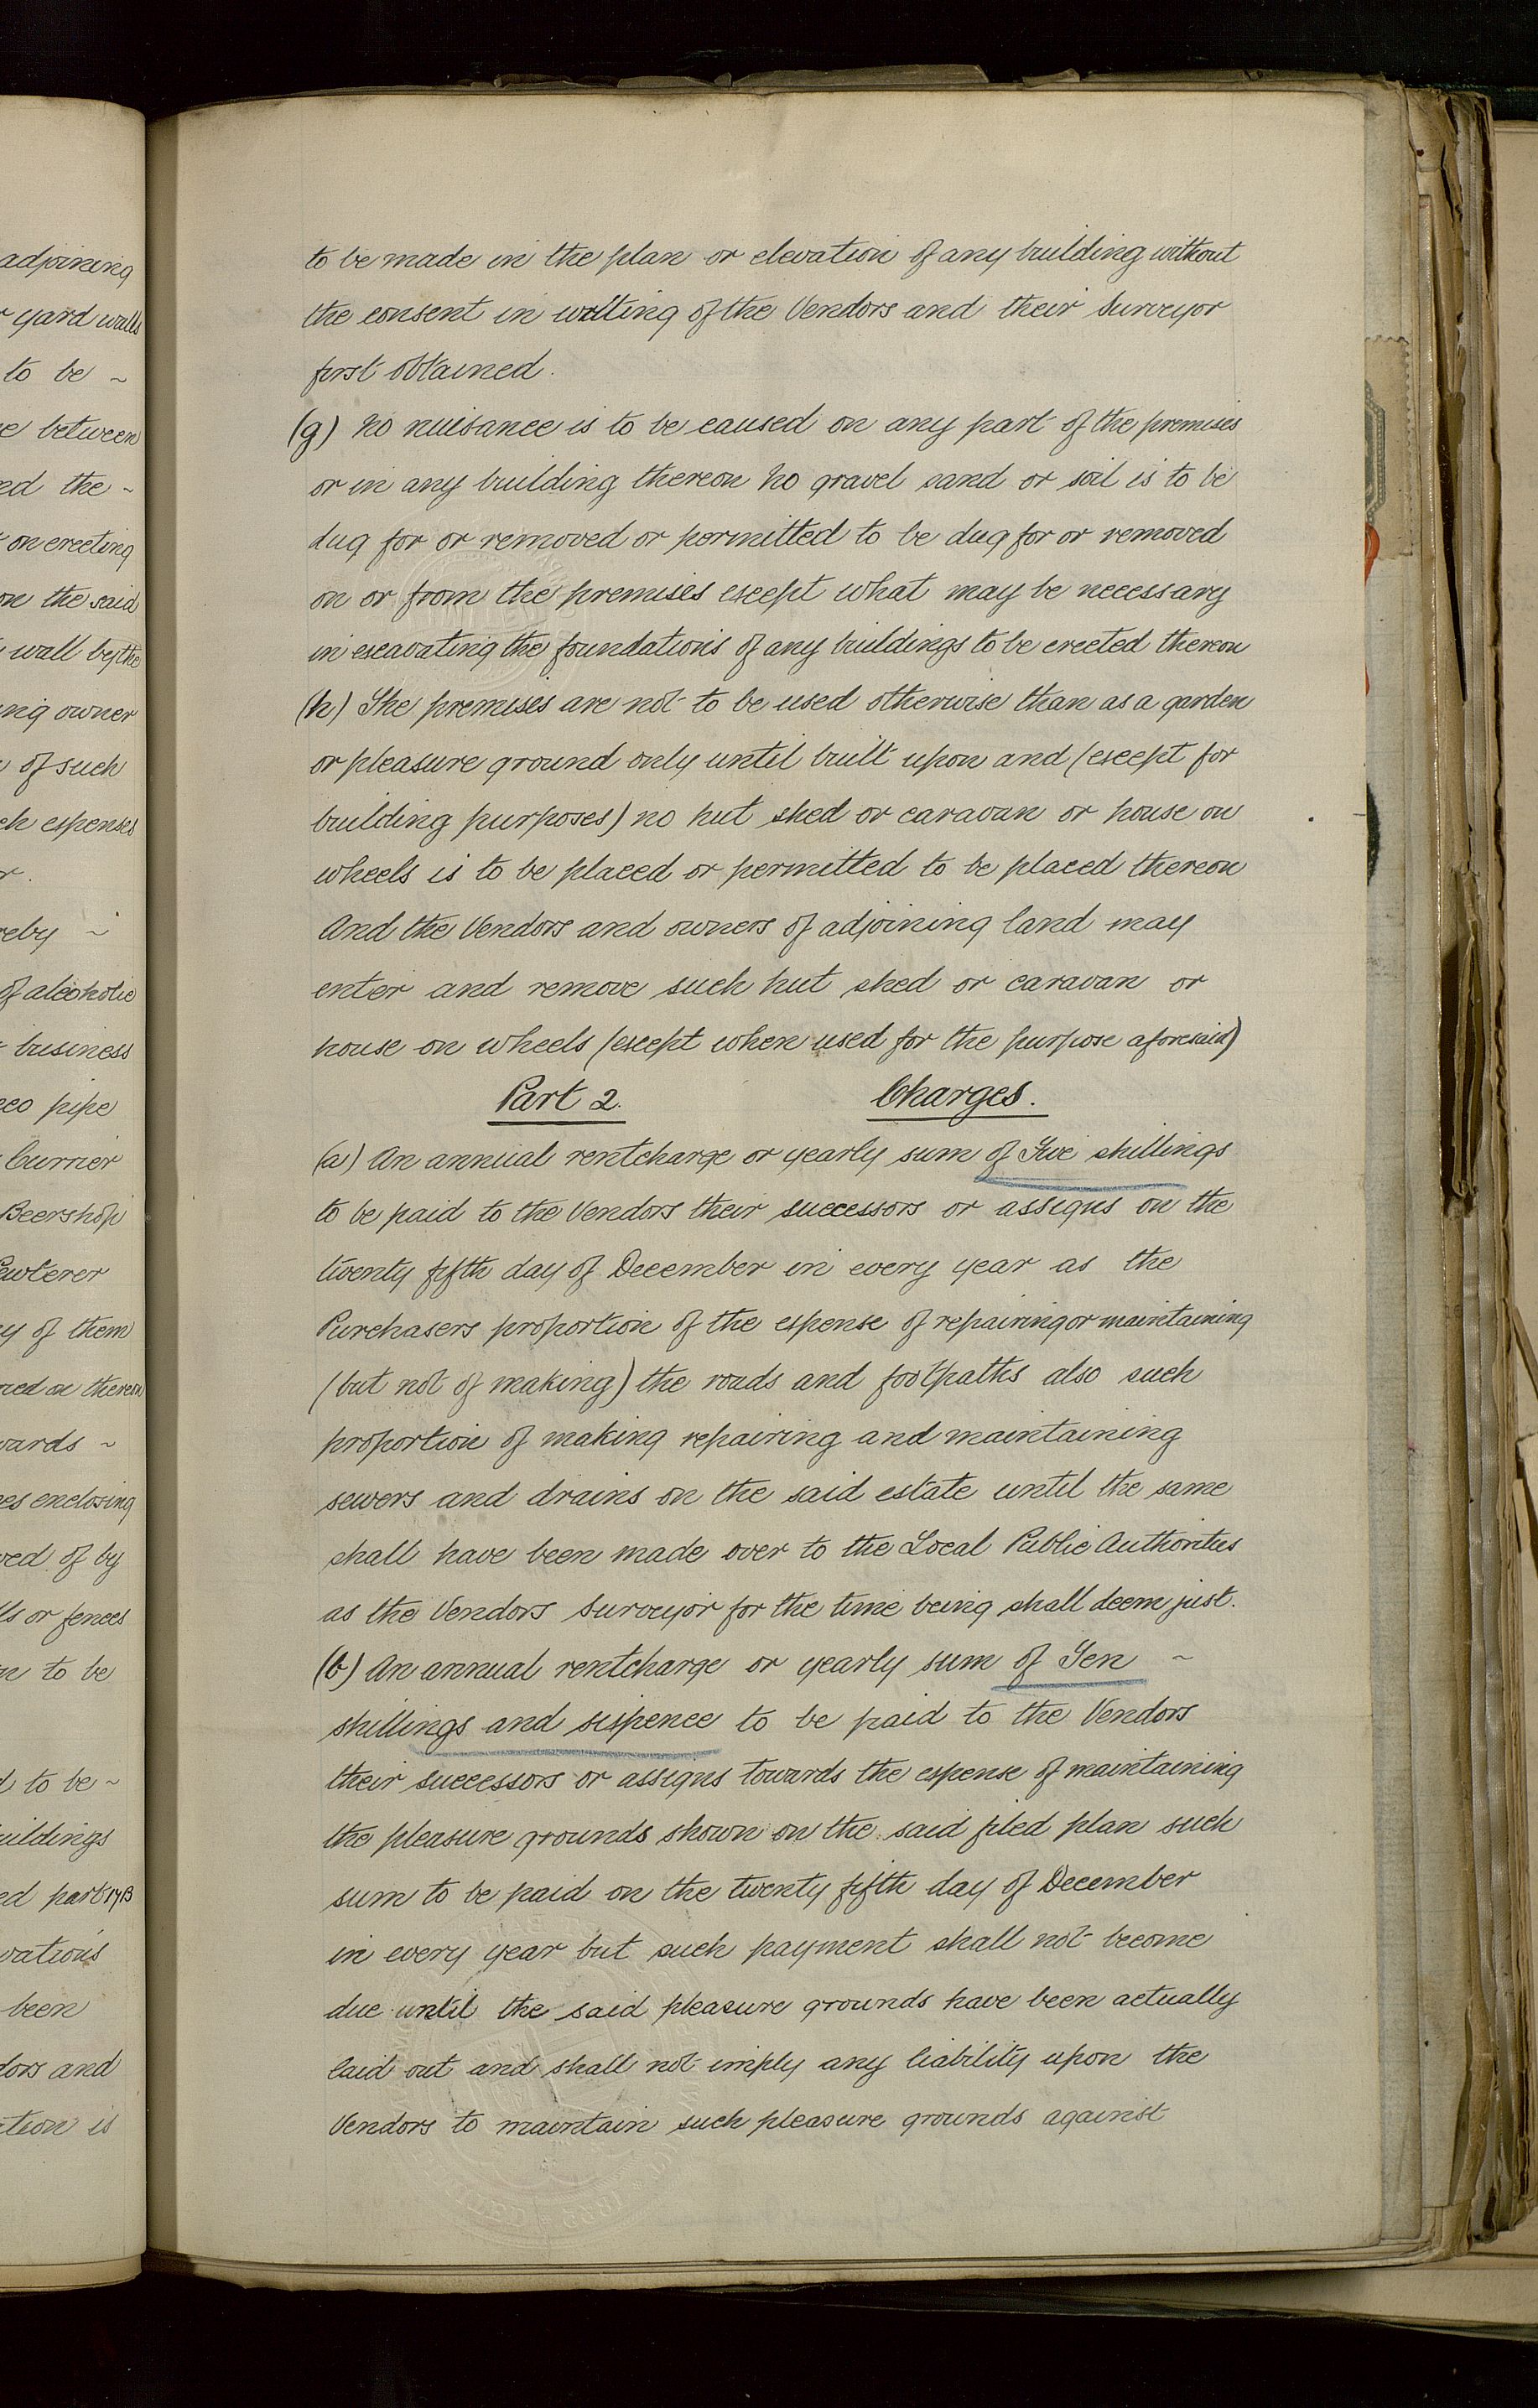 adjoining
yard walls
to be ~
between
the ~
on erecting
the said
wall by the
owner
of such
expenses
of alcoholic
business
pipe
Currier
Beershop
of them
thereon
enclosing
of by
or fences
to be
to be ~
part 17B
been
and
is
to be made in the plan or elevation of any building without
the consent in writing of the Vendors and their Surveyor
first obtained.
(g) No nuisance is to be caused on any part of the premises
or in any building thereon No gravel sand or soil is to be
dug for or removed or permitted to be dug for or removed
on or from the premises except what may be necessary
in excavating the foundations of any buildings to be erected thereon
(h) The premises are not to be used otherwise than as a garden
or pleasure ground only until built upon and (except for
building purposes) no hut shed or caravan or house on
wheels is to be placed or permitted to be placed thereon
And the Vendors and owners of adjoining land may
enter and remove such hut shed or caravan or
house on wheels (except when used for the purpose aforesaid)
Part 2. Charges.
(a) An annual rentcharge or yearly sum of Five shillings
to be paid to the Vendors their successors or assigns on the
twenty fifth day of December in every year as the
Purchasers proportion of the expense of repairing or maintaining
(but not of making) the roads and footpaths also such
proportion of making repairing and maintaining
sewers and drains on the said estate until the same
shall have been made over to the Local Public Authorities
as the Vendors Surveyor for the time being shall deem just.
(b) An annual rentcharge or yearly sum of Ten ~
shillings and sixpence to be paid to the Vendors
their successors or assigns towards the expense of maintaining
the pleasure grounds shown on the said filed plan such
sum to be paid on the twenty fifth day of December
in every year but such payment shall not become
due until the said pleasure grounds have been actually
laid out and shall not imply any liability upon the
Vendors to maintain such pleasure grounds against